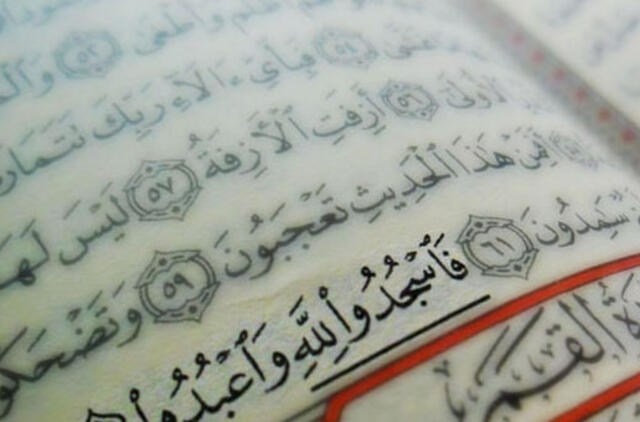 أَظْلَمَ وَأَطْغَىٰ ٥٢
غَشَّىٰ ٥٤ فَبِأَيِّ ءَالَآءِ رَبِّكَ تَتَمَارَىٰ
ٱلْأُولَىٰٓ ٥٦ أَزِفَتِ ٱلْأَزِفَةُ ٥٧ لَيْسَ لَهَا
أَفَمِنْ هَٰذَا ٱلْحَدِيثِ تَعْجَبُونَ ٥٩ وَتَضْحَكُونَ
سَٰمِدُونَ ٦١ فَٱسْجُدُوا۟ لِلَّهِ وَٱعْبُدُوا۟
القمر